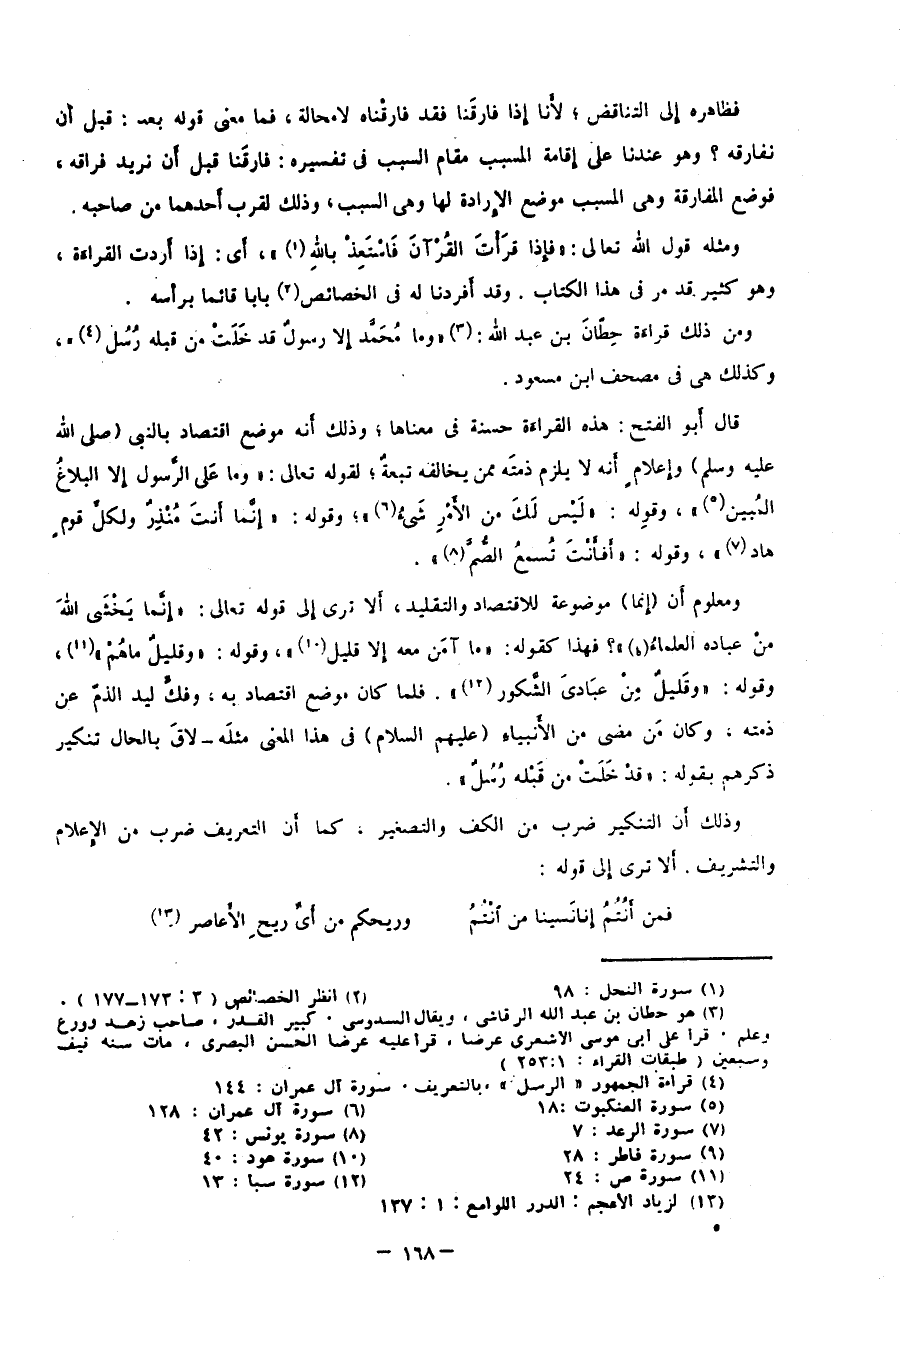 فظاهره إلى التناقض ؛ لأنا إذا فارقَنا فقد فارقْناه لامحالة ، فما معنى قوله بعد : قبل أن
نفارقه ؟ وهو عندنا على إقامة المسبب مقام السبب فى تفسيره : فارقَنا قبل أن نريد فراقه ،
فوضع المفارقة وهى المسبب موضع الإرادة لها وهى السبب ، وذلك لقرب أحدهما من صاحبه .
ومثله قول الله تعالى : « فإذا قرَأْتَ القُرْآنَ فَاسْتَعِذْ باللهِ (١) » ، أى : إذا أردت القراءة ،
وهو كثير قد مر فى هذا الكتاب . وقد أفردنا له فى الخصائص (٢) بابا قائما برأسه .
ومن ذلك قراءة حِطَّانَ بن عبد الله : (٣) « وما مُحَمَّد إلا رسولٌ قد خَلَتْ من قبله رُسُل (٤) » ،
وكذلك هى فى مصحف ابن مسعود .
قال أبو الفتح : هذه القراءة حسنة فى معناها ؛ وذلك أنه موضع اقتصاد بالنبى (صلى الله
عليه وسلم) وإعلامٍ أنه لا يلزم ذمتَه ممن يخالفه تبعةٌ ؛ لقوله تعالى : « وما على الرَّسول إلا البلاغُ
المُبين (٥) » ، وقوله : « لَيْس لَكَ من الأَمْرِ شَىءٌ (٦) » ؛ وقوله : « إنَّما أنتَ مُنْذِرٌ ولكلِّ قومٍ
هاد (٧) » ، وقوله : « أَفأَنْتَ تُسمعُ الصُّمَّ (٨) » .
ومعلوم أن (إنما) موضوعة للاقتصاد والتقليد ، ألا ترى إلى قوله تعالى : « إنَّما يَخْشَى اللهَ
منْ عباده العلماءُ (٩) » ؟ فهذا كقوله : « ما آمَن معه إلا قليل (١٠) » ، وقوله : « وقليلٌ ماهُمْ » (١١) ،
وقوله : « وقَليلٌ مِنْ عبَادىَ الشَّكور (١٢) » . فلما كان موضع اقتصاد به ، وفكٍّ ليد الذمّ عن
ذمته ؛ وكان مَن مضى من الأنبياء (عليهم السلام) فى هذا المعنى مثلَه ــ لاقَ بالحال تنكير
ذكرهم بقوله : « قدْ خَلَتْ من قَبْله رُسُلٌ » .
وذلك أن التنكير ضرب من الكف والتصغير ، كما أن التعريف ضرب من الإعلام
والتشريف . ألا ترى إلى قوله :
فمن أَنْتُمُ إنانَسينا من انْتُمُ وريحكم من أىِّ ريحِ الأَعاصر (١٣)
(١) سورة النحل : ٩٨ (٢) انظر الخصائص ( ٣ : ١٧٣ــ١٧٧ ) .
(٣) هو حطان بن عبد الله الرقاشى ، ويقال السدوسى . كبير القدر ، صاحب زهد وورع
وعلم . قرأ على أبى موسى الأشعرى عرضا ، قرأ عليه عرضا الحسن البصرى ، مات سنة نيف
وسبعين ( طبقات القراء : ١:٢٥٣ )
(٤) قراءة الجمهور « الرسل » ، بالتعريف . سورة آل عمران : ١٤٤
(٥) سورة العنكبوت : ١٨ (٦) سورة آل عمران : ١٢٨
(٧) سورة الرعد : ٧ (٨) سورة يونس : ٤٢
(٩) سورة فاطر : ٢٨ (١٠) سورة هود : ٤٠
(١١) سورة ص : ٢٤ (١٢) سورة سبأ : ١٣
(١٣) لزياد الأعجم : الدرر اللوامع : ١ : ١٣٧
— ١٦٨ —